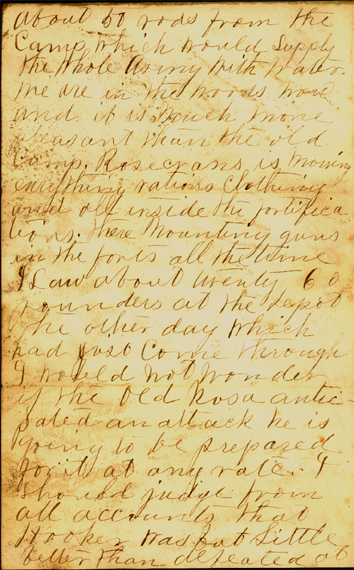 about 50 rods from the
Camp, which would supply
the whole Army with water.
We are in the woods now
and it is much more
pleasant than the old
Camp. Rosecrans is moving
everything rations Clothing
and all inside the fortifica
tions. there mounting guns
in the forts all the time
I Saw about twenty 60
pounders at the depot
the other day which
had just Come through
I would not wonder
if the Old Rosa antici-
pated an attack he is
going to be prepared
for it at any rate. I
should judge from
all accounts that
Hooker was but little
better than defeated at